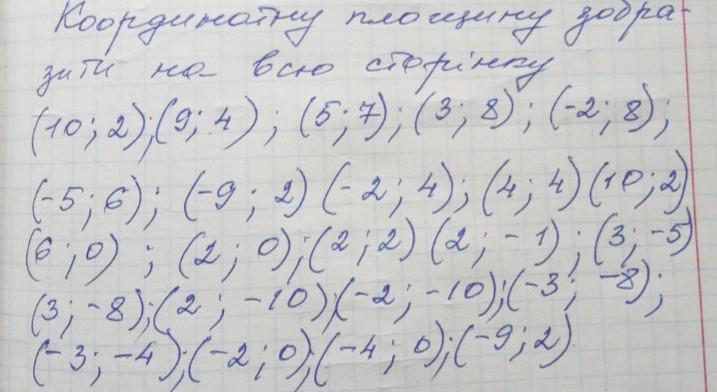 Координатну площину зобра-
зити на всю сторінку
(10; 2);(9; 4) ; (5; 7) ; (3 ; 8) ; (-2; 8);
(-5; 6) ; (-9 ; 2) (-2 ; 4) ; (4 ; 4) (10 ; 2)
(6 ; 0) ; (2 ; 0);(2 ; 2) (2 ; -1) ; (3 ; -5)
(3 ; -8);(2 ; -10);(-2; -10);(-3 ; -8);
(-3 ; -4);(-2; 0);(-4 ; 0);(-9; 2)